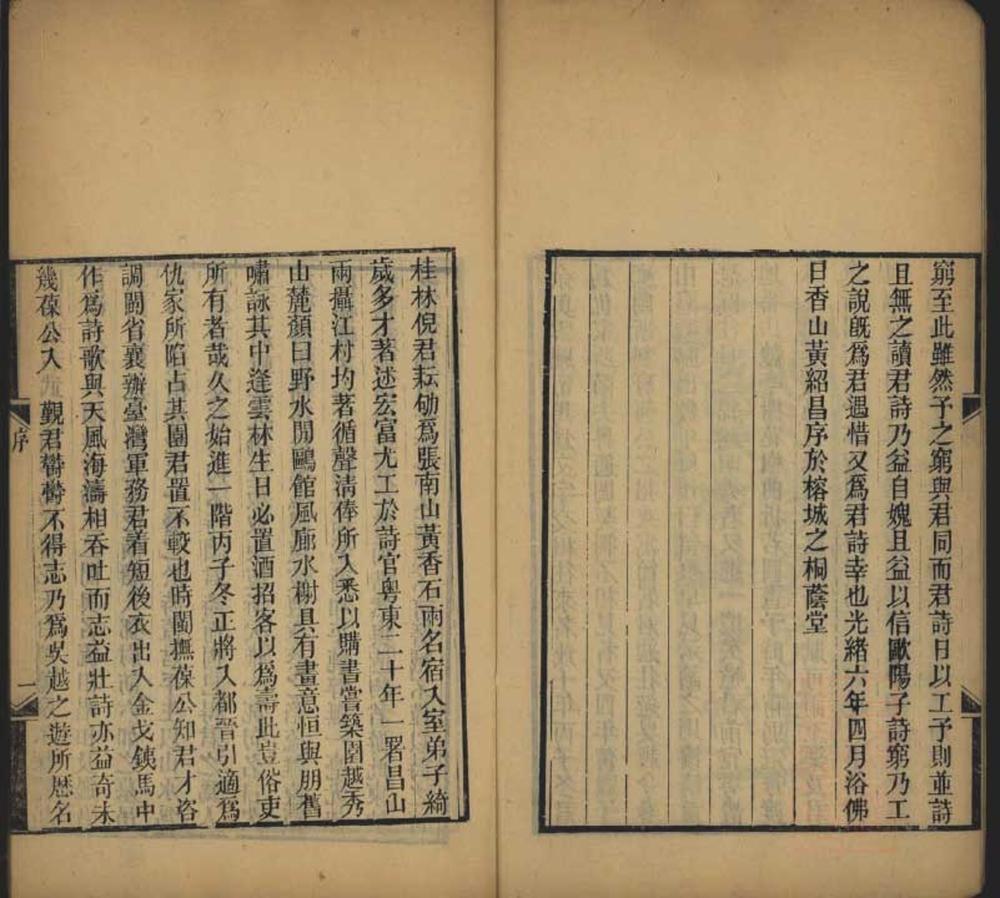 窮至此雖然予之窮與君同而君詩日以工予則並詩
且無之讀君詩乃益自媿且益以信歐陽子詩窮乃工
之說既為君遇惜又為君詩幸也光緒六年四月浴佛
日香山黃紹昌序於榕城之桐蔭堂
桂林倪君耘劬為張南山黃香石兩名宿入室弟子綺
歲多才著述宏富尤工於詩官粵東二十年一署昌山
兩攝江村均著循聲清俸所入悉以購書嘗築園越秀
山麓顏曰野水閒鷗館風廊水榭具有畫意恒與朋舊
嘯詠其中逢雲林生日必置酒招客以為壽此豈俗吏
所有者哉久之始進一階丙子冬正將入都晉引適為
仇家所陷占其園君置不較也時閩撫葆公知君才咨
調閩省襄辦臺灣軍務君着短後衣出入金戈鐵馬中
作為詩歌與天風海濤相吞吐而志益壯詩亦益奇未
幾葆公入覲君鬱鬱不得志乃為吳越之遊所歷名
序
一